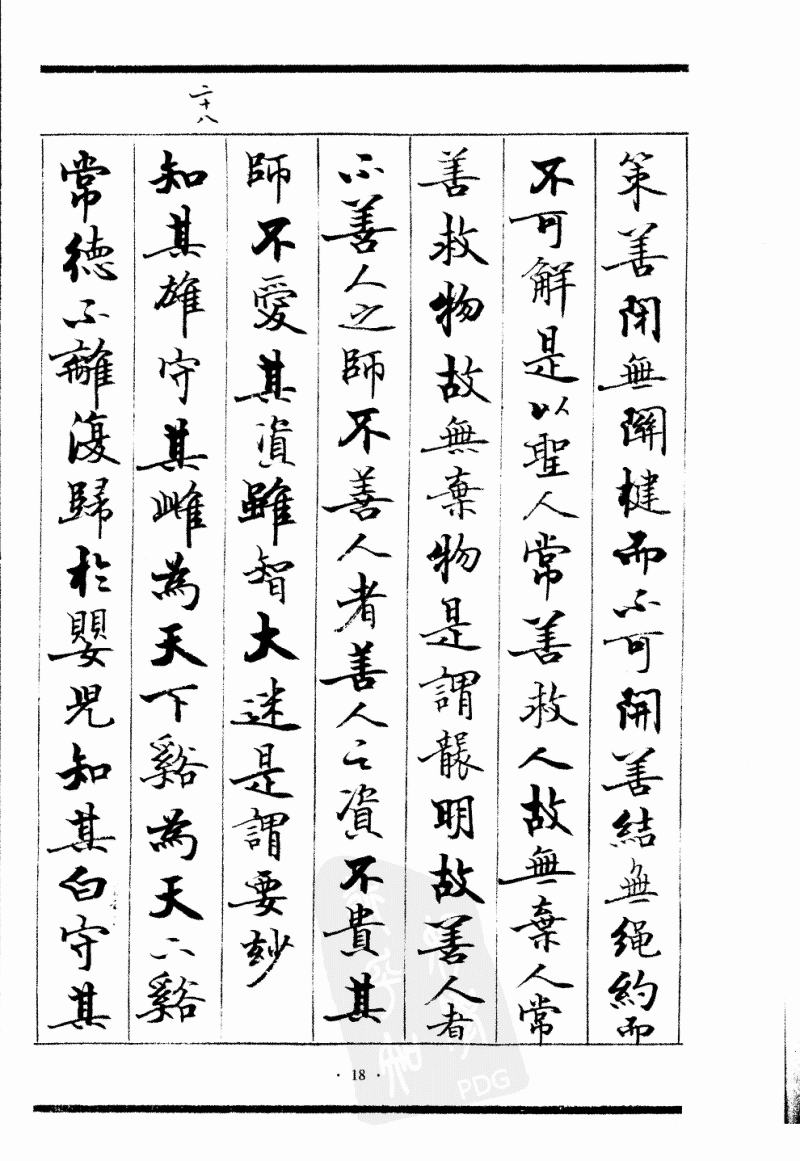 策善閉無關楗而不可開善結無绳約而
不可解是以聖人常善救人故無棄人常
善救物故無棄物是謂襲明故善人者
不善人之師不善人者善人之資不貴其
師不愛其資雖智大迷是謂要玅
二十八
知其雄守其雌為天下谿為天下谿
常德不離復歸於嬰兒知其白守其
· 18 ·
PDG